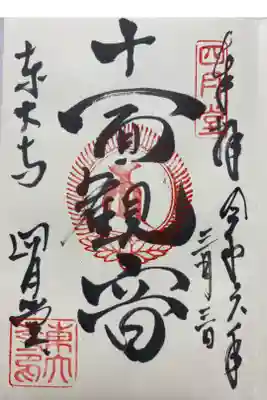 奉拝
令和六年
三月三日
十一面観音
東大寺
四月堂
四月堂